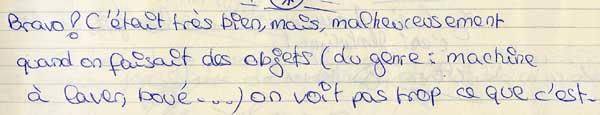 Bravo! C'était très bien, mais, malheureusement
quand on faisait des objets (du genre : machine
à laver, boué....) on voit pas trop ce que c'est.